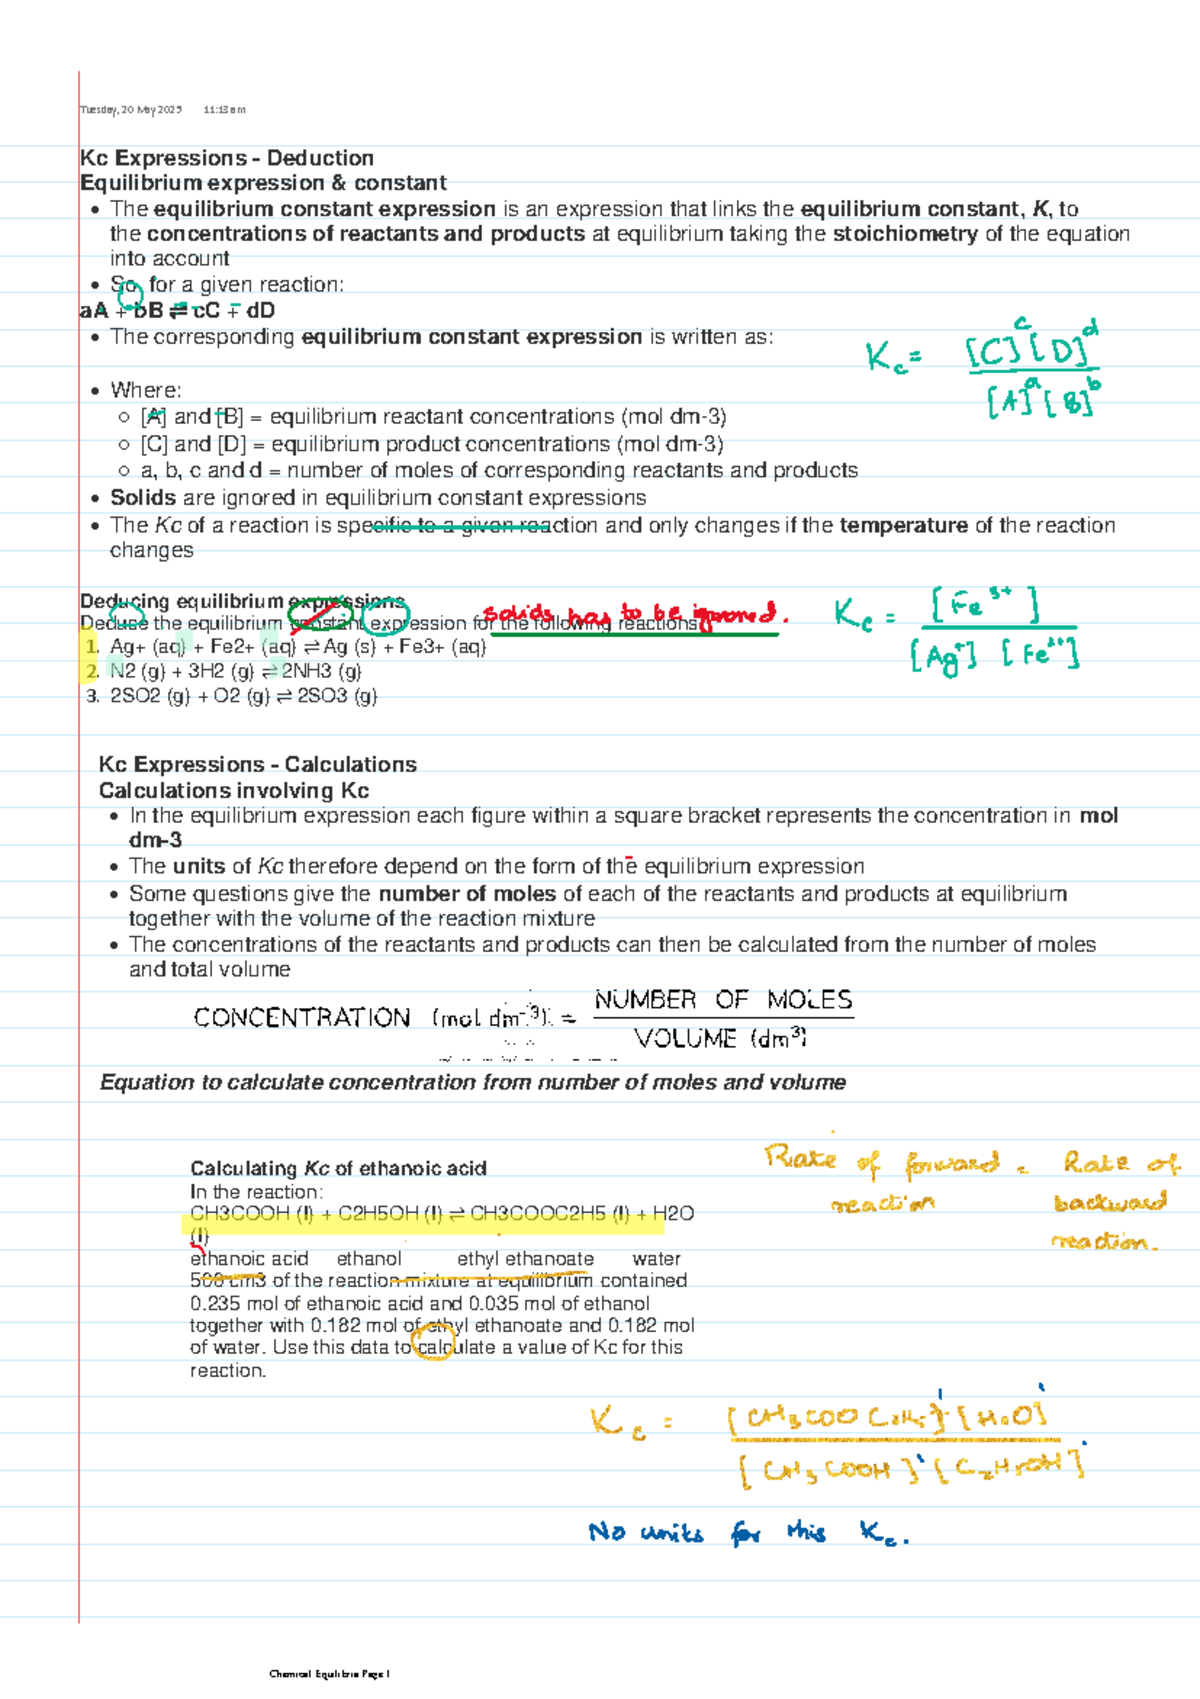 Tuesday, 20 May 2025 11:13 am
Kc Expressions - Deduction
Equilibrium expression & constant
• The equilibrium constant expression is an expression that links the equilibrium constant, K, to
the concentrations of reactants and products at equilibrium taking the stoichiometry of the equation
into account
• So, for a given reaction:
aA + bB ⇌ cC + dD
• The corresponding equilibrium constant expression is written as:
Kc = [C]^c [D]^d
[A]^a [B]^b
• Where:
○ [A] and [B] = equilibrium reactant concentrations (mol dm-3)
○ [C] and [D] = equilibrium product concentrations (mol dm-3)
○ a, b, c and d = number of moles of corresponding reactants and products
• Solids are ignored in equilibrium constant expressions
• The Kc of a reaction is specific to a given reaction and only changes if the temperature of the reaction
changes
Deducing equilibrium expressions
solids has to be ignored.
Deduce the equilibrium constant expression for the following reactions
1. Ag+ (aq) + Fe2+ (aq) ⇌ Ag (s) + Fe3+ (aq)
2. N2 (g) + 3H2 (g) ⇌ 2NH3 (g)
3. 2SO2 (g) + O2 (g) ⇌ 2SO3 (g)
Kc = [Fe3+]
[Ag+] [Fe2+]
Kc Expressions - Calculations
Calculations involving Kc
• In the equilibrium expression each figure within a square bracket represents the concentration in mol
dm-3
• The units of Kc therefore depend on the form of the equilibrium expression
• Some questions give the number of moles of each of the reactants and products at equilibrium
together with the volume of the reaction mixture
• The concentrations of the reactants and products can then be calculated from the number of moles
and total volume
CONCENTRATION (mol dm-3) = NUMBER OF MOLES
VOLUME (dm3)
Equation to calculate concentration from number of moles and volume
Calculating Kc of ethanoic acid
In the reaction:
CH3COOH (l) + C2H5OH (l) ⇌ CH3COOC2H5 (l) + H2O
(l)
ethanoic acid ethanol ethyl ethanoate water
500 cm3 of the reaction mixture at equilibrium contained
0.235 mol of ethanoic acid and 0.035 mol of ethanol
together with 0.182 mol of ethyl ethanoate and 0.182 mol
of water. Use this data to calculate a value of Kc for this
reaction.
Rate of forward = Rate of
reaction backward
reaction.
Kc = [CH3COOC2H5]^1 [H2O]^1
[CH3COOH]^1 [C2H5OH]^1
No units for this Kc.
Chemical Equilibria Page 1